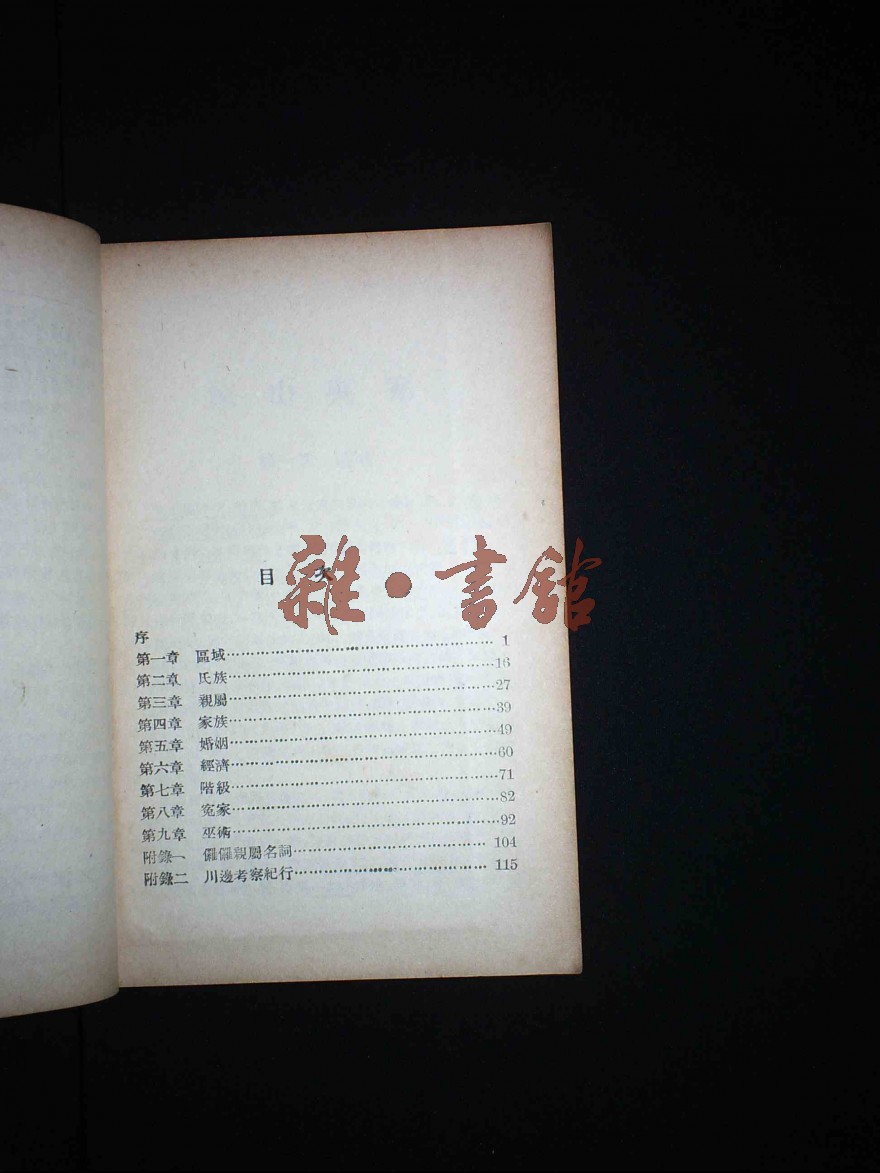 目次
雜·書館
序
第一章 區域……1
第二章 氏族……16
第三章 親屬……27
第四章 家族……39
第五章 婚姻……49
第六章 經濟……60
第七章 階級……71
第八章 冤家……82
第九章 巫術……92
附錄一 儸儸親屬名詞……104
附錄二 川邊考察紀行……115